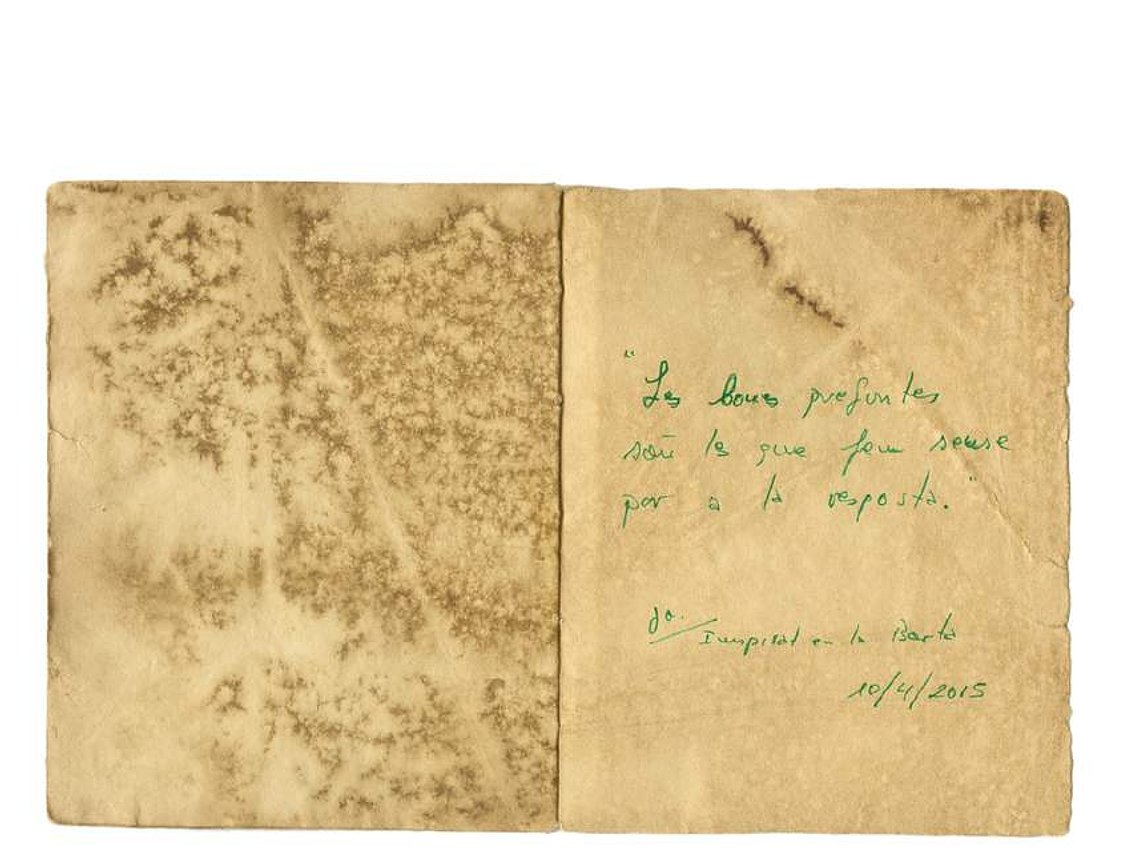 "Les bones preguntes
són les que fem sense
por a la resposta."
Jo. / Inspirat en la Berta
10/4/2015